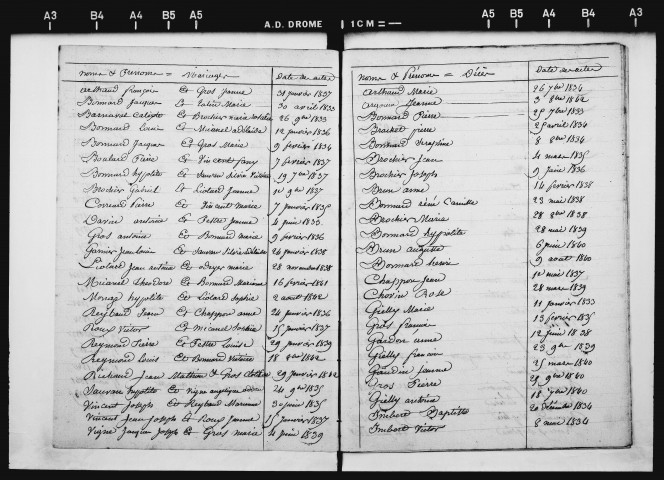 A3 B4 A4 B5 A5 A.D. DROME 1CM = A5 B5 A4 B4 A3
Noms & Prenoms = Mariages Date des actes
Arthaud françois Et Gros Jeanne 31 janvier 1837
Bonnard Jacques Et Marie 30 avril 1833
Barnave Calixte Et Brochier marie 26 9bre 1833
Bonnard Louis Et Mianel adélaïde 12 janvier 1836
Bonnard Jacques Et Gros Marie 9 février 1834
Boulard Pierre Et Vincent fany 7 février 1837
Bonnard hypolite Et Sauvan 19 7bre 1837
Brochier Gabriel Et Liotard Jeanne 9bre 1837
Corréard Pierre Et Vincent marie 7 janvier 1835
David antoine Et Pestre Jeanne 4 juin 1835
Gros antoine Et Bonnard marie 9 février 1836
Garnier Jean louis Et Sauvan 26 janvier 1838
Liotard Jean antoine Et marie 28 novembre 1838
Mianel théodore Et Bonnard Marianne 16 février 1841
Monage hypolite Et Liotard Sophie 2 août 1842
Reybaud Jean Et Chappon anne 24 janvier 1836
Roux Victor Et Mianel Sophie 15 janvier 1837
Reymond Pierre Et Pestre Louise 29 janvier 1839
Reymond Louis Et Bonnard Victoire 18 1842
Richaud Jean Mathieu & Gros 29 janvier 1842
Sauvan hypolite Et Vigne angélique 24 9bre 1835
Vincent Joseph Et Reybaud Marianne 30 juin 1835
Vincent Jean Joseph Et Roux Jeanne 15 janvier 1837
Vigne Jacques Joseph Et Gros marie 4 juin 1839
Noms & Prénoms = Décès Date des actes
Arthaud Marie 26 7bre 1834
Jeanne 3 1842
Bonnard Pierre 25 7bre 1833
Brachet pierre 25 avril 1834
Bonnard Séraphine 8 8bre 1834
Brochier Jean 4 mars 1835
Brochier Joseph 9 juin 1836
Brun anne 14 février 1838
Bonnard rémi Camille 23 mai 1838
Brochier Marie 28 8bre 1838
Bonnard hypolite 28 mai 1839
Brun auguste 6 juin 1840
Bonnard henri 9 août 1840
Chappon Jean 1er mai 1837
Chovin Rose 28 mars 1839
Gielly Marie 11 janvier 1833
Gros françois 13 février 1835
Gardon anne 12 juin 1838
Gielly françois 23 9bre 1839
Gardon Jeanne 25 mars 1840
Gros Pierre 21 9bre 1840
Gielly antoine 18 1840
Imbert Baptiste 20 décembre 1834
Imbert Victor 8 mai 1834